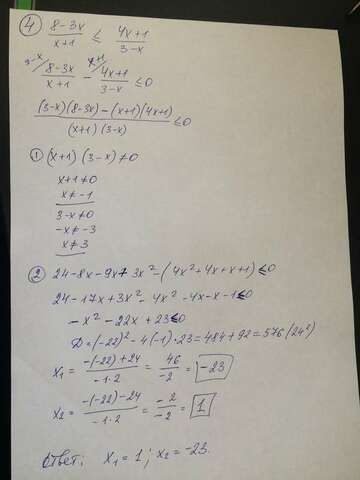 ④ (8-3x)/(x+1) ≤ (4x+1)/(3-x)
3-x/ (8-3x)/(x+1) - x+1/ (4x+1)/(3-x) ≤0
((3-x)(8-3x)-(x+1)(4x+1))/((x+1)(3-x)) ≤0
① (x+1)(3-x)≠0
x+1≠0
x≠-1
3-x≠0
-x≠-3
x≠3
② 24-8x-9x+3x²-(4x²+4x+x+1)≤0
24-17x+3x²-4x²-4x-x-1≤0
-x²-22x+23≤0
D=(-22)²-4(-1)·23=484+92=576(24²)
x₁=(-(-22)+24)/(-1·2)=46/-2=-23
x₂=(-(-22)-24)/(-1·2)=-2/-2=1
Ответ: x₁=1; x₂=-23.